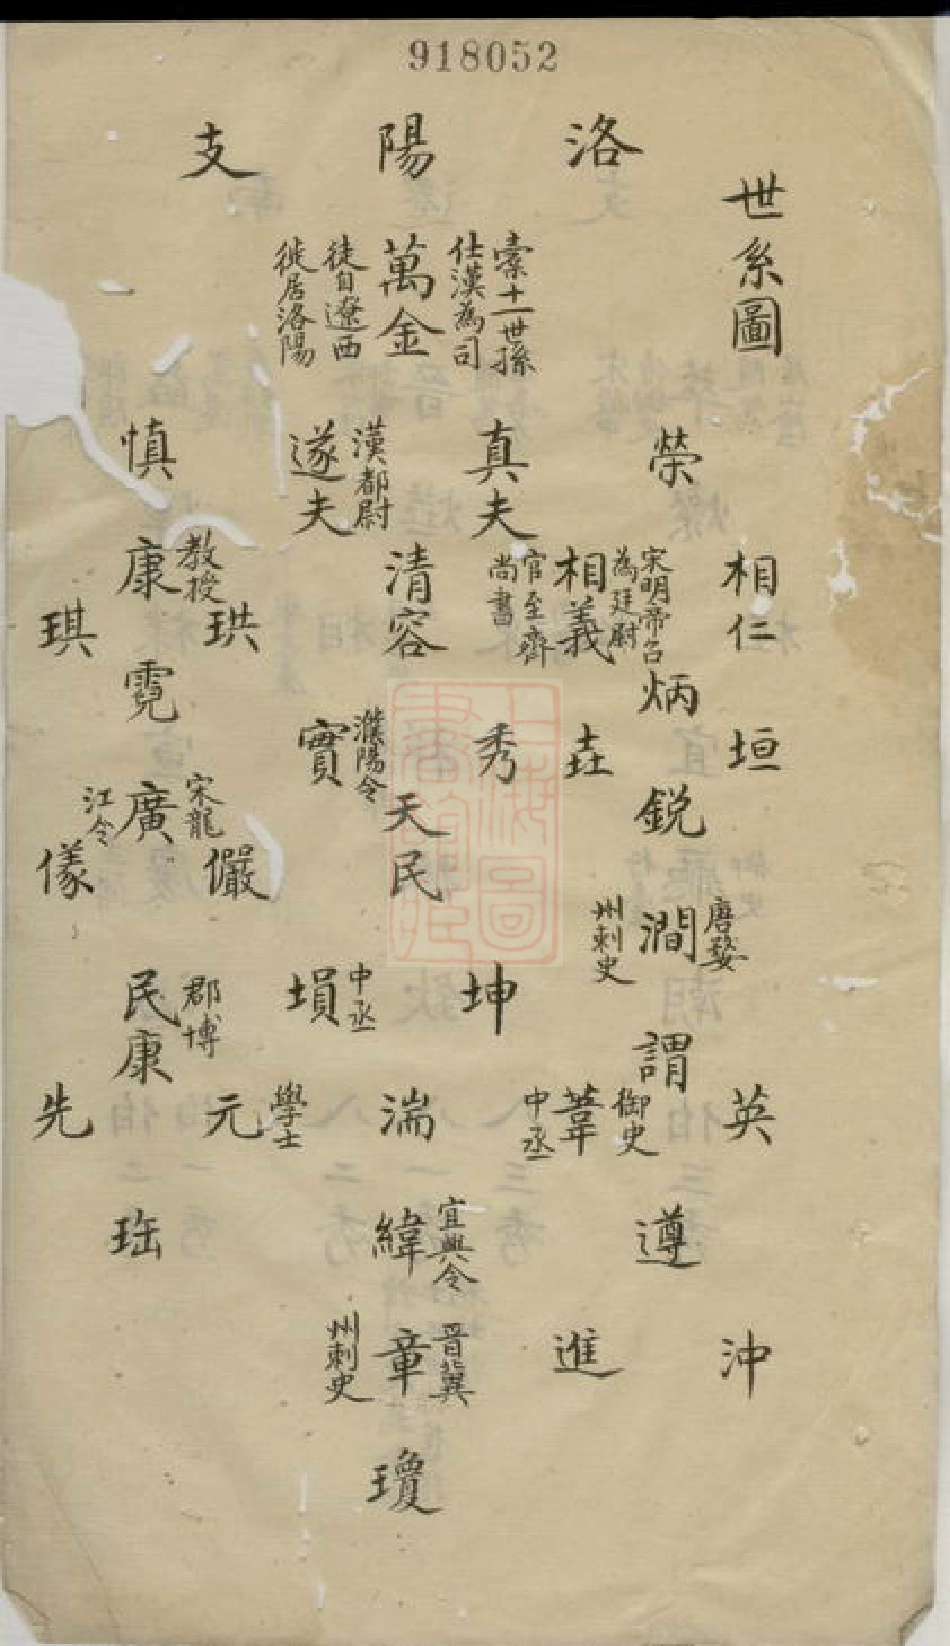 918052
世系圖
洛陽支
萬金
㐮十一世孫
仕漢為司
徒自遼西
徙居洛陽
榮
真夫
遂夫
漢都尉
慎
相仁
相義
宋明帝召
為廷尉
官至齊
尚書
清容
康
教授
炳
珙
琪
霓
垣
垚
秀
實
濮陽令
銳
天民
廣
宋龍
江令
儼
㒽
澗
唐婺
州刺史
坤
塤
中丞
民康
郡博
謂
英
葦
御史
中丞
湍
元
學士
先
遵
緯
宜興令
瑎
沖
進
章
晋冀
州刺史
瓊